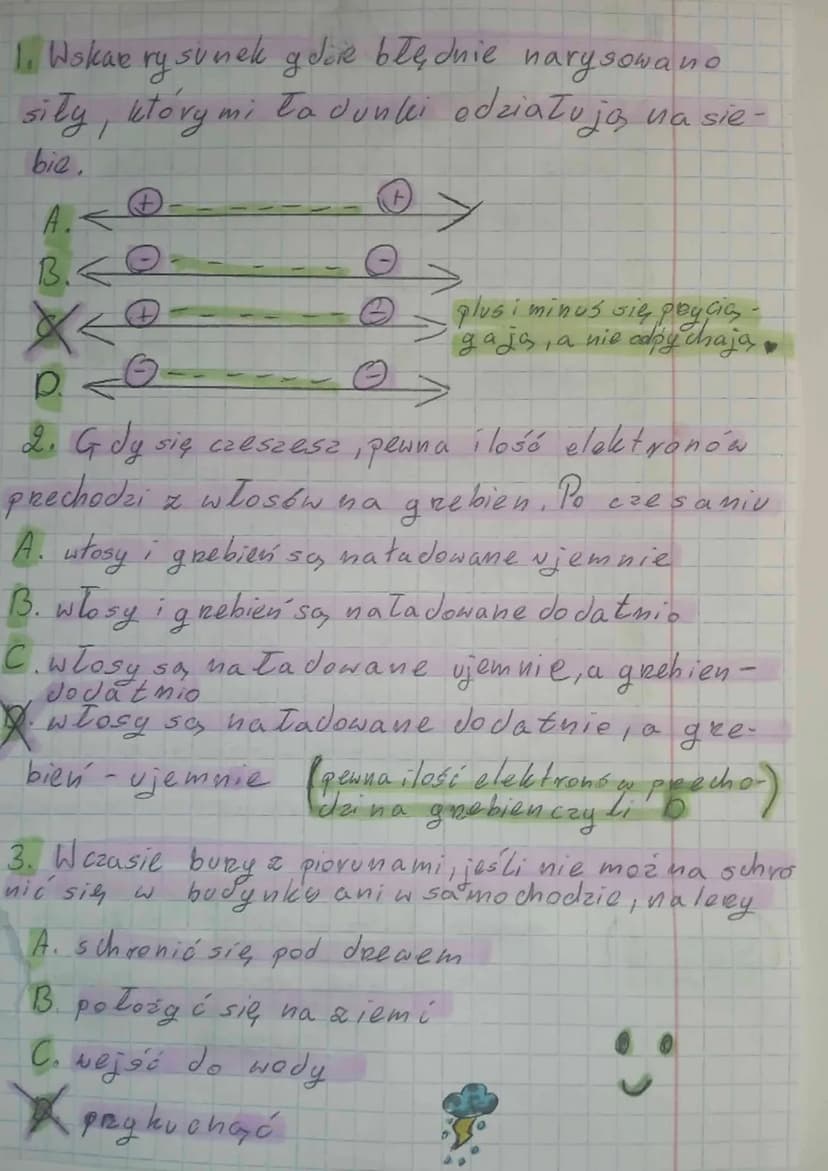 1. Wskaż rysunek gdzie błędnie narysowano
siły, którymi ładunki odziałują na sie-
bie.
A. + +
B. - -
C. + -
plus i minus się przycią-
gają, a nie odpychają.
D. - -
2. Gdy się czeszesz, pewna ilość elektronów
przechodzi z włosów na grzebien. Po czesaniu
A. włosy i grzebień są naładowane ujemnie
B. włosy i grzebień są naładowane dodatnio
C. włosy są naładowane ujemnie, a grzebien-
dodatnio
D. włosy są naładowane dodatnie, a grze-
bień - ujemnie
(pewna ilość elektronów przecho-
dzi na grzebien czyli D)
3. W czasie burzy z piorunami, jeśli nie można schro
nić się w budynku ani w samochodzie, należy
A. schronić się pod drzewem
B. położyć się na ziemi
C. wejść do wody
D. przykucnąć